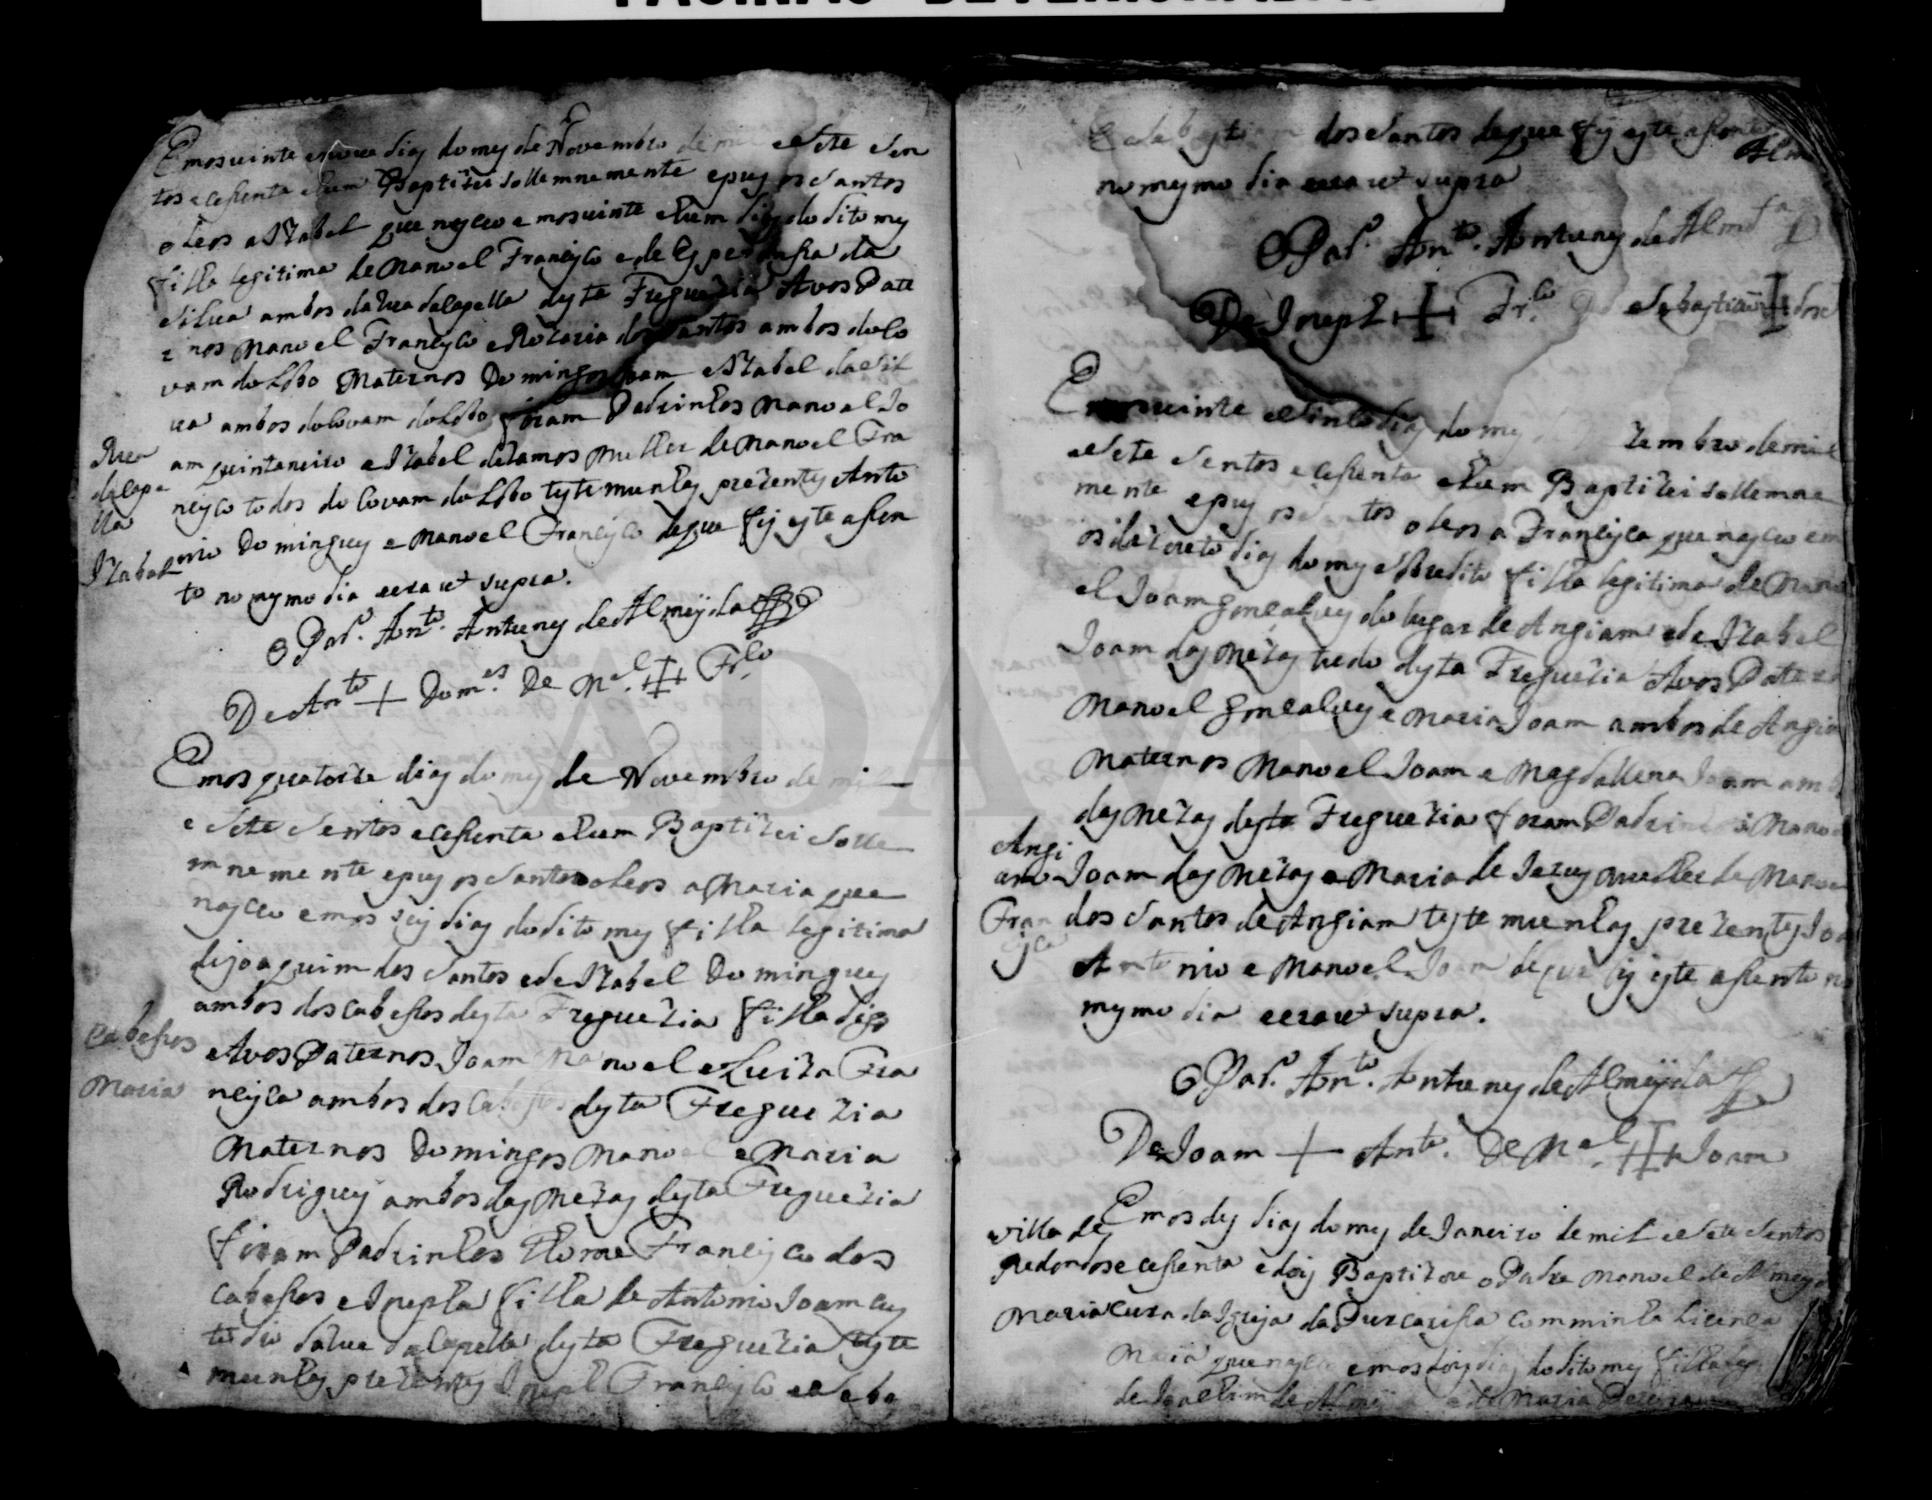 PAGINAS DETERIORADAS
Emos vinte e nove dias do mes de Novembro de mil e sete sen
tos e cessenta e hum Baptizei sollemnemente e pus os santos
oleos a Izabel que nasceo emos vinte e hum dias do dito mes
filha legitima de Manoel Francisco e de Esperansa da
Silva ambos da Rua da Capella desta Freguezia Avos Pate
rnos Manoel Francisco e Rozaria dos Santos ambos do Co
vam do Lobo Maternos Domingos Joam e Izabel da Sil
va ambos do Covam do Lobo foram Padrinhos Manoel Jo
am quintaneiro e Izabel de Ramos molher de Manoel Fra
ncisco todos do Covam do Lobo testemunhas prezentes Anto
nio Domingues e Manoel Francisco de que fis este assen
to no mesmo dia era ut supra.
O Par.º Ant.º Antunes de Almeyda
De Ant.º + Dom.es De M.el + Fr.co
Rua
da Cape
lla
Izabel
Emos quatorze dias do mes de Novembro de mil
e sete sentos e cessenta e hum Baptizei solle
mnemente e pus os santos oleos a Maria que
nasceo emos seis dias do dito mes filha legitima
de Joaquim dos Santos e de Izabel Domingues
ambos dos Cabessos desta Freguezia filha digo
Avos Paternos Joam Manoel e Luiza Fra
ncisca ambos dos Cabessos desta Freguezia
Maternos Domingos Manoel e Maria
Rodrigues ambos das Mezas desta Freguezia
foram Padrinhos Thome Francisco dos
Cabessos e Josepha filha de Antonio Joam
da Rua da Capella desta Freguezia teste
munhas prezentes Joseph Francisco e Seba
Cabessos
Maria
e Sebastiam dos Santos de que fis este assento
no mesmo dia era ut supra
O Par.º Ant.º Antunes de Alm.da
De Joseph + Fr.co De Sebastiam + dos
Emos vinte e sinco dias do mes tembro de mil
e sete sentos e cessenta e hum Baptizei sollemne
mente e pus os santos oleos a Francisca que nasceo em
os dezoito dias do mes filha legitima de Mano
el Joam Goncalves do lugar de Angiam e de Izabel
Joam das Mezas tudo desta Freguezia Avos Patern
Manoel Goncalves e Maria Joam ambos de Angia
Maternos Manoel Joam e Magdallena Joam amb
das Mezas desta Freguezia foram Padrinhos Mano
Joam das Mezas e Maria de Jezus molher de Manoe
dos Santos de Angiam testemunhas prezentes Joa
Antonio e Manoel Joam de que fis este assento no
mesmo dia era ut supra.
Angi
am
Fran
isca
O Par.º Ant.º Antunes de Almeyda
De Joam + Ant.º De M.el + Joam
Emos des dias do mes de Janeiro de mil e sete sentos
e cessenta e dois Baptizou o Padre Manoel de Almeyd
cura da Igreja da com minha Licença
Maria que nasceo emos dois dias do dito mes filha leg
de Joachim de Alm e de Maria Pereira
Villa de
Redondos
Maria
ADAVR